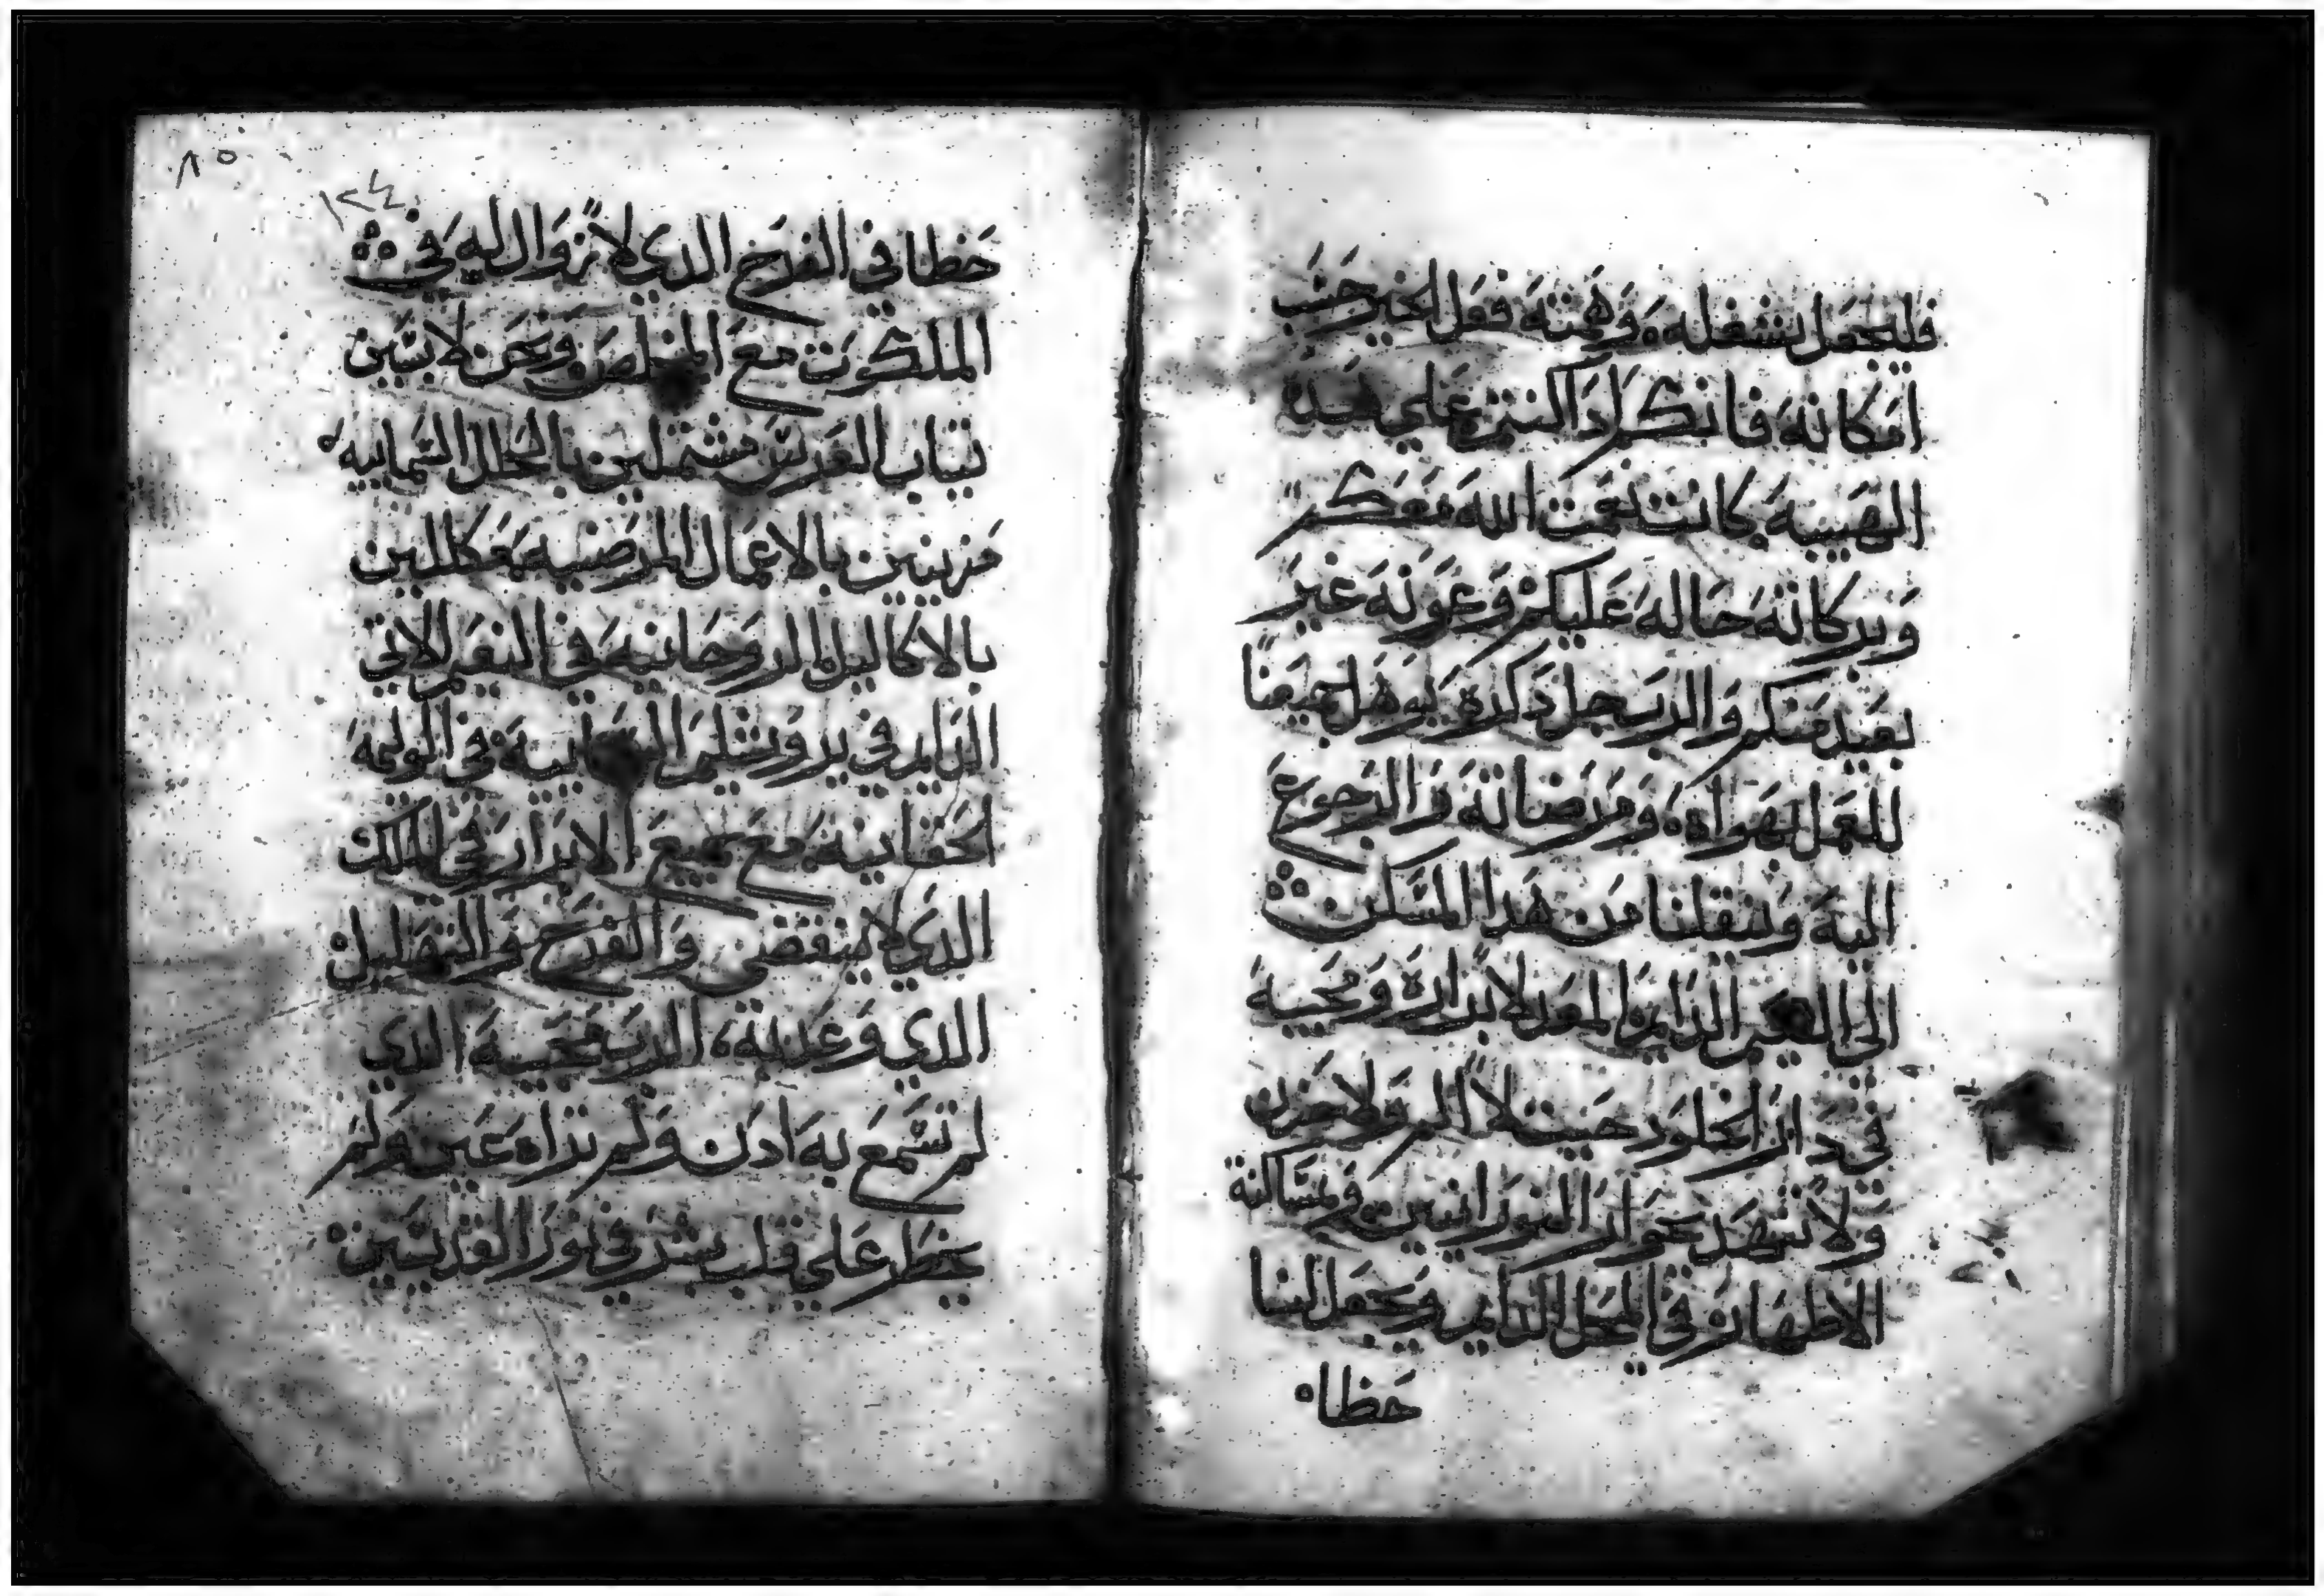 فليجعل شغله وهمته فعل الخير حسب
امكانه فانكم اذا كنتم على هده
الهيبه كانت نعمت الله معكم
وبركاته حاله عليكم وعونه غير
بعيد منكم والرب جل دكره يوهل جميعنا
للعمل بهواه ومرضاته والرجوع
اليه وينقلنا من هدا المسكن
الى النعيم الدايم المعد لابراره ومحبيه
في دار الخلود حيت لا الم ولا حزن
ولا تنهد بجوار النورانيين ومساكنة
الاطهار في المحل الدايم ويجعل لنا
حظا
٨٥
١٢٤
حظا في الفرح الدي لا زوال له في
الملكوت مع المخلص ونحن لابسين
تياب العرس مشتملين بالحلل السمايية
مزينين بالاعمال المرضيه مكللين
بالاكاليل الروحانيه في النعيم الاتي
الدايم في يروشليم السمايية في الوليمة
الحقانيه مع جميع الابرار في الملك
الدي لا ينقضي والفرح والتهليل
الدي وعد به الرب محبيه الدي
لم تسمع به ادن ولم تراه عين ولم
يخطر على قلب بشر في نور القديسين